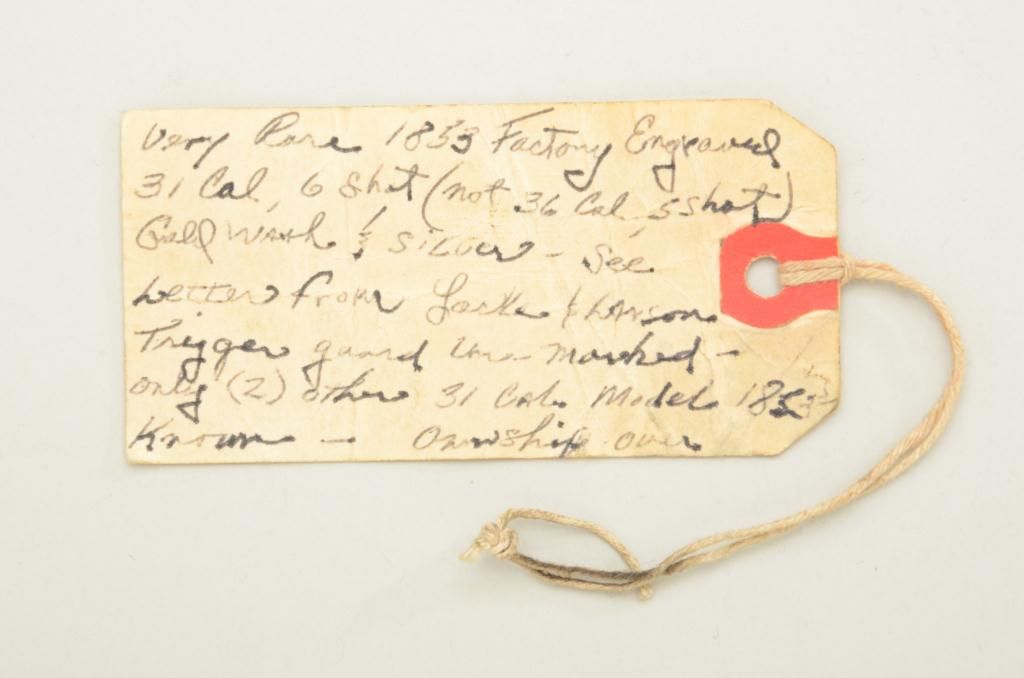 Very Rare 1853 Factory Engraved
31 Cal, 6 Shot (not 36 Cal, 5 shot)
Gold Wash & Silver - See
Letter from Locke & Larson
Trigger guard un-marked -
only (2) other 31 Cal. Model 1853
Known - Ownship over